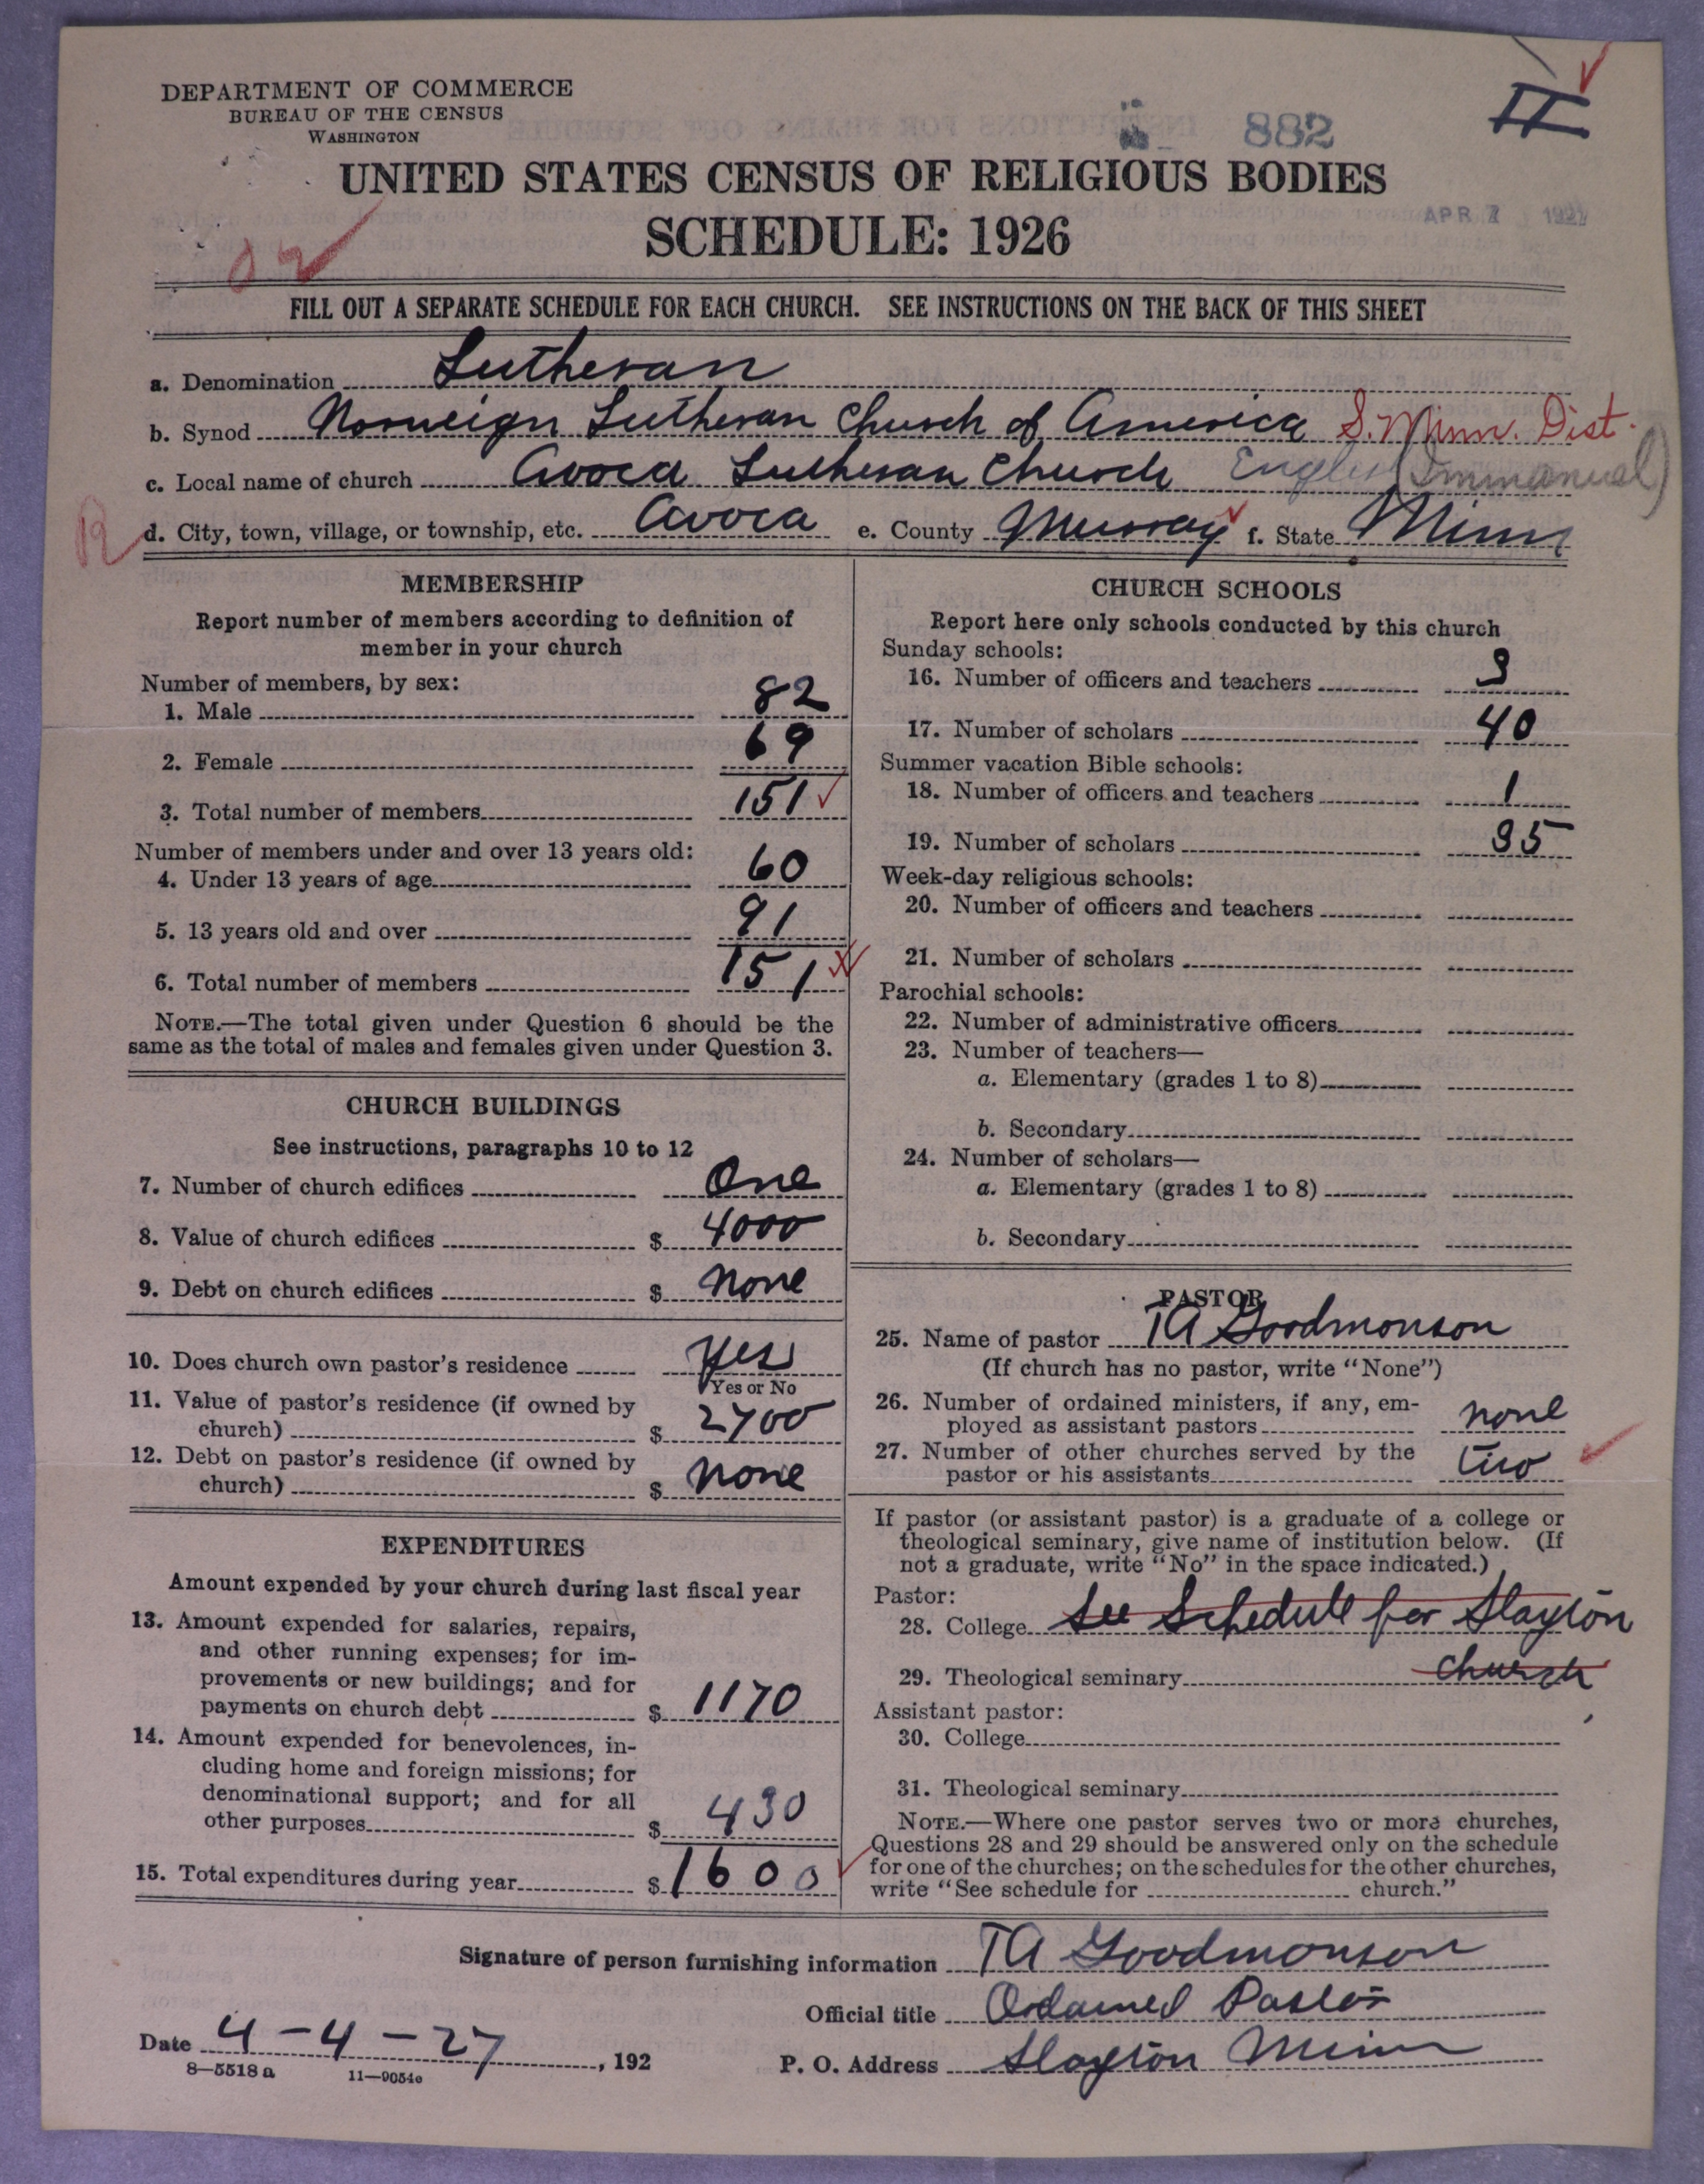 DEPARTMENT OF COMMERCE
BUREAU OF THE CENSUS
WASHINGTON
882
II
UNITED STATES CENSUS OF RELIGIOUS BODIES
SCHEDULE: 1926
APR 7 1927
FILL OUT A SEPARATE SCHEDULE FOR EACH CHURCH. SEE INSTRUCTIONS ON THE BACK OF THIS SHEET
a. Denomination Lutheran
b. Synod Norweign Lutheran Church of America S. Minn. Dist.
c. Local name of church Avoca Lutheran Church English (Immanuel)
d. City, town, village, or township, etc. Avoca e. County Murray f. State Minn
MEMBERSHIP
Report number of members according to definition of
member in your church
Number of members, by sex:
1. Male 82
2. Female 69
3. Total number of members 151
Number of members under and over 13 years old:
4. Under 13 years of age 60
5. 13 years old and over 91
6. Total number of members 151
NOTE.—The total given under Question 6 should be the
same as the total of males and females given under Question 3.
CHURCH BUILDINGS
See instructions, paragraphs 10 to 12
7. Number of church edifices One
8. Value of church edifices $ 4000
9. Debt on church edifices $ none
10. Does church own pastor's residence Yes
Yes or No
11. Value of pastor's residence (if owned by
church) $ 2700
12. Debt on pastor's residence (if owned by
church) $ none
EXPENDITURES
Amount expended by your church during last fiscal year
13. Amount expended for salaries, repairs,
and other running expenses; for im-
provements or new buildings; and for
payments on church debt $ 1170
14. Amount expended for benevolences, in-
cluding home and foreign missions; for
denominational support; and for all
other purposes $ 430
15. Total expenditures during year $ 1600
CHURCH SCHOOLS
Report here only schools conducted by this church
Sunday schools:
16. Number of officers and teachers 3
17. Number of scholars 40
Summer vacation Bible schools:
18. Number of officers and teachers 1
19. Number of scholars 35
Week-day religious schools:
20. Number of officers and teachers
21. Number of scholars
Parochial schools:
22. Number of administrative officers
23. Number of teachers—
a. Elementary (grades 1 to 8)
b. Secondary
24. Number of scholars—
a. Elementary (grades 1 to 8)
b. Secondary
PASTOR
25. Name of pastor TA Goodmonson
(If church has no pastor, write "None")
26. Number of ordained ministers, if any, em-
ployed as assistant pastors none
27. Number of other churches served by the
pastor or his assistants two
If pastor (or assistant pastor) is a graduate of a college or
theological seminary, give name of institution below. (If
not a graduate, write "No" in the space indicated.)
Pastor:
28. College See Schedule for Slayton
29. Theological seminary church
Assistant pastor:
30. College
31. Theological seminary
NOTE.—Where one pastor serves two or more churches,
Questions 28 and 29 should be answered only on the schedule
for one of the churches; on the schedules for the other churches,
write "See schedule for church."
Signature of person furnishing information TA Goodmonson
Official title Ordained Pastor
Date 4-4-27, 192
P. O. Address Slayton Minn
8—5518 a 11—9054c